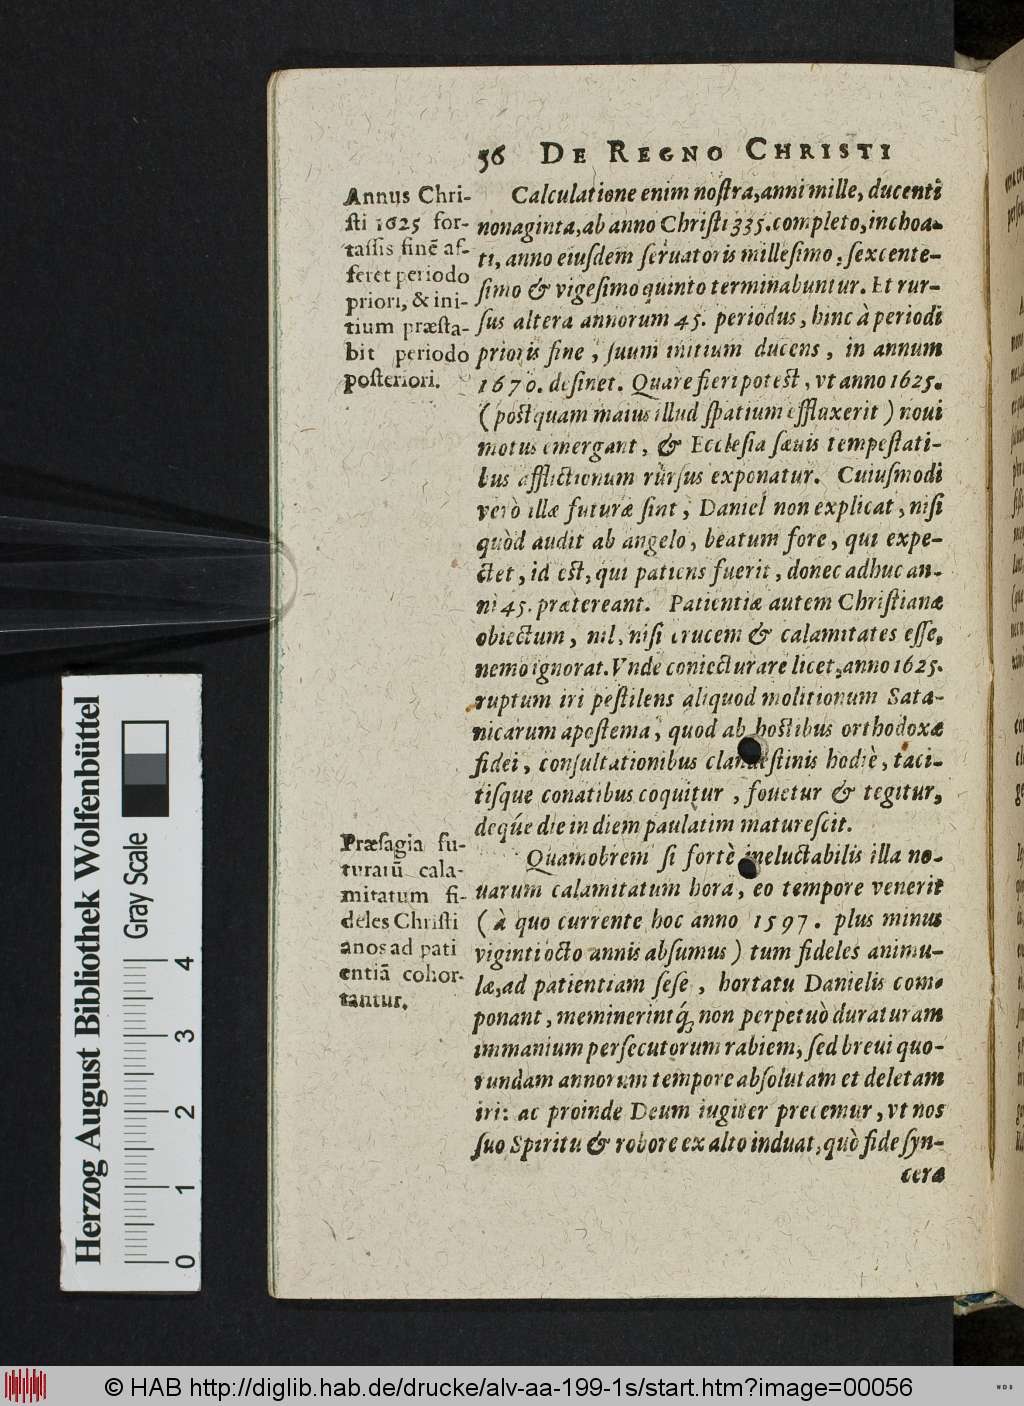 56 DE REGNO CHRISTI
Annus Chri-
sti 1625 for-
tassis finē af-
feret periodo
priori, & ini-
tium præsta-
bit periodo
posteriori.
Calculatione enim nostra, anni mille, ducenti
nonaginta, ab anno Christi 335. completo, inchoa-
ti, anno eiusdem seruatoris millesimo, sexcente-
simo & vigesimo quinto terminabuntur. Et rur-
sus altera annorum 45. periodus, hinc à periodi
prioris fine, suum initium ducens, in annum
1670. desinet. Quare fieri potest, vt anno 1625.
(postquam maius illud spatium effluxerit) noui
motus emergant, & Ecclesia sæuis tempestati-
bus afflictionum rursus exponatur. Cuiusmodi
verò illæ futuræ sint, Daniel non explicat, nisi
quòd audit ab angelo, beatum fore, qui expe-
ctet, id est, qui patiens fuerit, donec adhuc an-
ni 45. prætereant. Patientiæ autem Christianæ
obiectum, nil, nisi crucem & calamitates esse,
nemo ignorat. Vnde coniecturare licet, anno 1625.
ruptum iri pestilens aliquod molitionum Sata-
nicarum apostema, quod ab hostibus orthodoxæ
fidei, consultationibus clandestinis hodiè, taci-
tisque conatibus coquitur, fouetur & tegitur,
deq́ue die in diem paulatim maturescit.
Præsagia fu-
turarū cala-
mitatum fi-
deles Christi
anos ad pati
entiā cohor-
tantur.
Quamobrem si fortè ineluctabilis illa no-
uarum calamitatum hora, eo tempore venerit
(à quo currente hoc anno 1597. plus minus
viginti octo annis absumus) tum fideles animu-
læ, ad patientiam sese, hortatu Danielis com-
ponant, meminerintq́; non perpetuò duraturam
immanium persecutorum rabiem, sed breui quo-
rundam annorum tempore absolutam et deletam
iri: ac proinde Deum iugiter precemur, vt nos
suo Spiritu & robore ex alto induat, quò fide syn-
cera
Herzog August Bibliothek Wolfenbüttel
Gray Scale
0 1 2 3 4
© HAB http://diglib.hab.de/drucke/alv-aa-199-1s/start.htm?image=00056